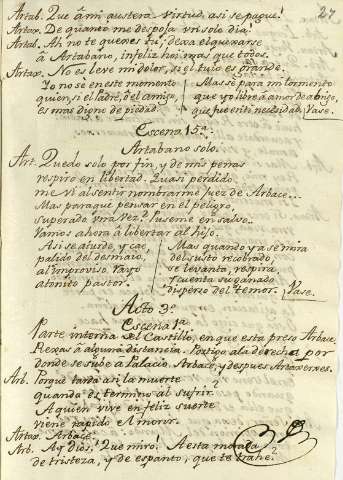 27
Artab. Que á mi austera virtud, asi se pague!
Artax. De quanto me despoja un solo dia!
Artab. Ah! no te quexes tu; dexa el quexarse
á Artabano, infeliz hoi mas que todos.
Artax. No es leve mi dolor, si el tuio es grande.
Yo no se en este momento
quien, si el Padre, del amigo,
es mas digno de piedad.
Mas se para mi tormento
que yo libre á amor de abrigo,
que fue en ti necesidad. Vase.
Escena 15ª
Artabano solo.
Art. Quedo solo por fin, y de mis penas
respiro en libertad. Quasi perdido
me vi al sentir nombrarme Juez de Arbace...
Mas para que pensar en el peligro,
superado una vez? Puseme en salvo.
Vamos ahora á libertar al hijo.
Asi se aturde, y cae
palido del desmaio,
al improviso rayo
atonito pastor.
Mas quando ya se mira
del susto recobrado,
se levanta, respira
y cuenta su ganado
disperso del temor. Vase.
Acto 3º
Escena 1ª
Parte interna del Castillo, en que esta preso Arbace.
Rexas á alguna distancia. Postigo a la derecha por
donde se sube a Palacio. Arbace, y despues Artaxerxes.
Arb. Porque tarda asi la muerte
quando es termino al sufrir?
A quien vive en feliz suerte
viene rapido el morir.
Artax. Arbace.
Arb. Ay Dios! Que miro! A esta morada
de tristeza, y de espanto, que te trahe?